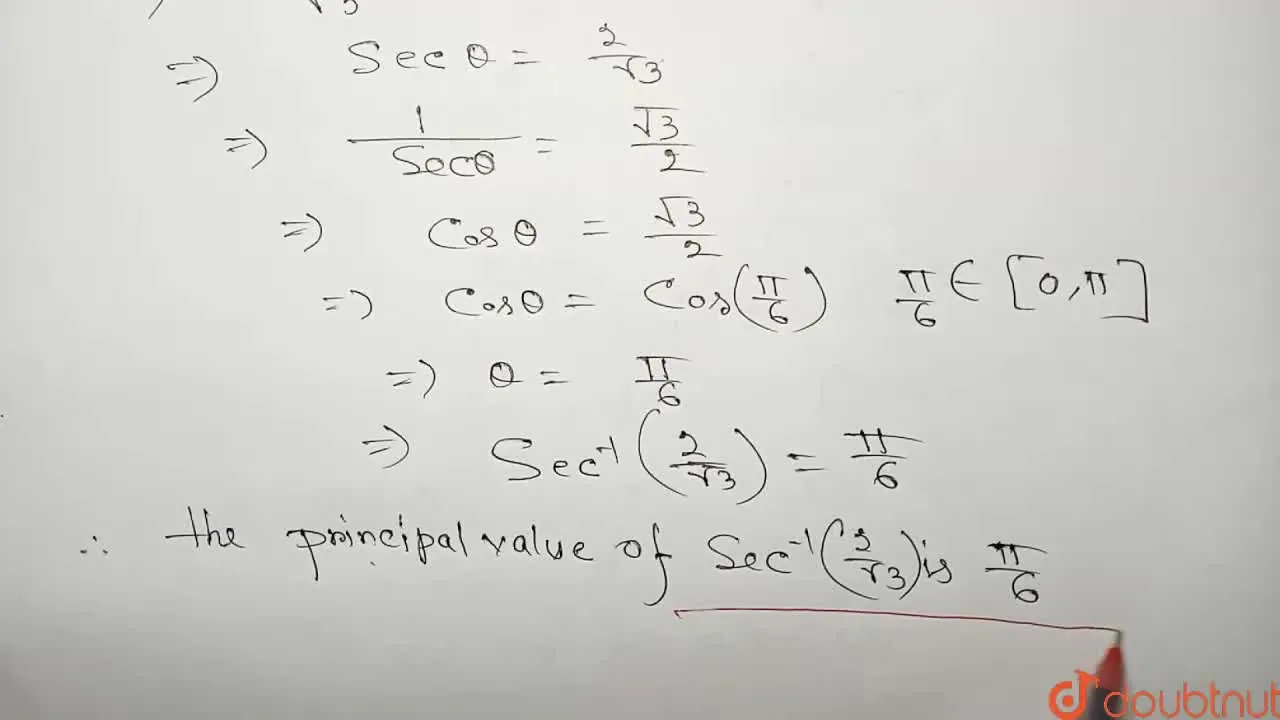 √3
⇒ Sec θ = 2/√3
⇒ 1/Secθ = √3/2
⇒ Cos θ = √3/2
⇒ Cosθ = Cos(π/6) π/6 ∈ [0,π]
⇒ θ = π/6
⇒ Sec⁻¹(2/√3) = π/6
∴ the principal value of Sec⁻¹(2/√3) is π/6
doubtnut